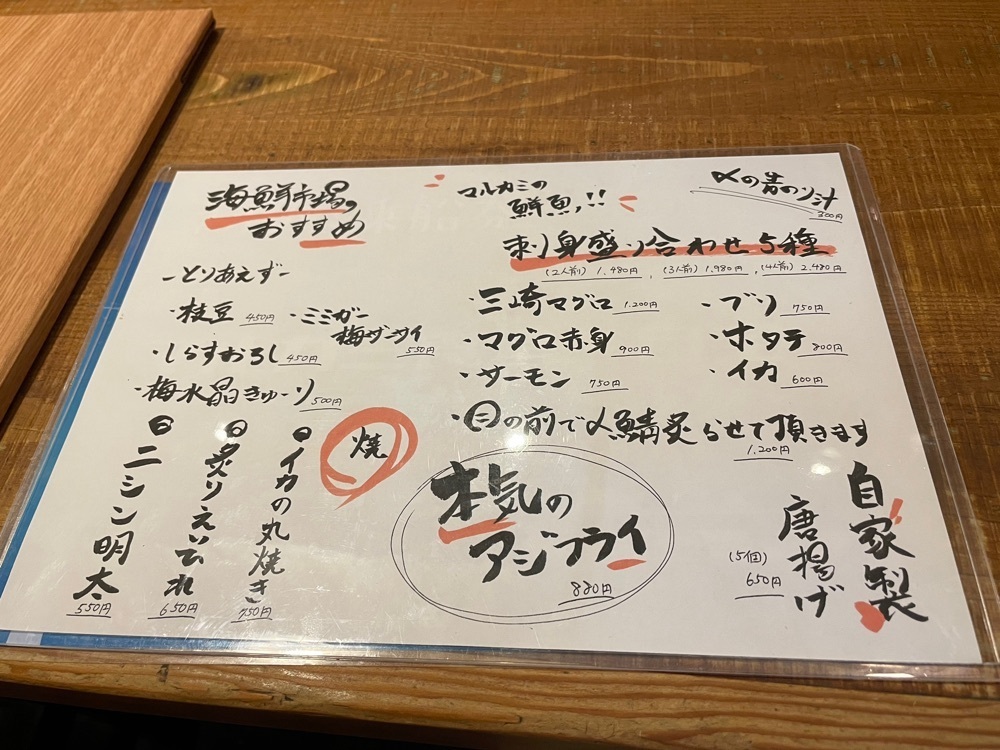 海鮮市場の
おすすめ
-とりあえず-
・枝豆 450円
・ミミガー
梅ザーサイ 550円
・しらすおろし 450円
・梅水晶きゅーり 500円
焼
イカの丸焼き 750円
炙りえいひれ 650円
ニシン明太 550円
マルカミの
鮮魚!!
〆の岩のり汁
300円
刺り身盛り合わせ5種
(2人前) 1.480円, (3人前) 1.980円, (4人前) 2.480円
・三崎マグロ 1.200円
・マグロ赤身 900円
・サーモン 750円
・ブリ 750円
・ホタテ 800円
・イカ 600円
・目の前で〆鯖炙らせて頂きます
1.200円
本気の
アジフライ
880円
自家製
唐揚げ
(5個)
650円